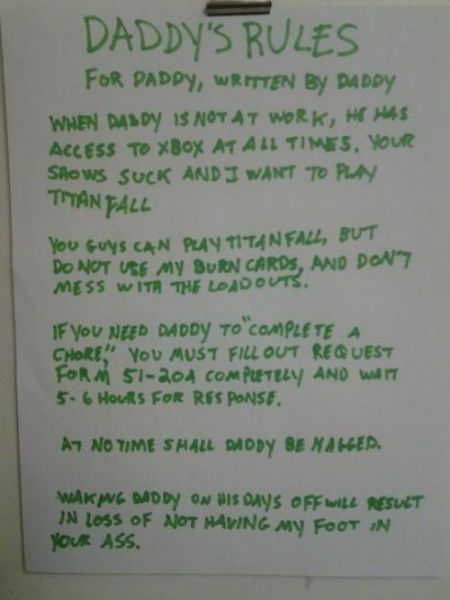 DADDY'S RULES
FOR DADDY, WRITTEN BY DADDY
WHEN DADDY IS NOT AT WORK, HE HAS
ACCESS TO XBOX AT ALL TIMES. YOUR
SHOWS SUCK AND I WANT TO PLAY
TITANFALL
YOU GUYS CAN PLAY TITANFALL, BUT
DO NOT USE MY BURN CARDS, AND DON'T
MESS WITH THE LOADOUTS.
IF YOU NEED DADDY TO "COMPLETE A
CHORE," YOU MUST FILL OUT REQUEST
FORM 51-20A COMPLETELY AND WAIT
5-6 HOURS FOR RESPONSE.
AT NO TIME SHALL DADDY BE NAGGED.
WAKING DADDY ON HIS DAYS OFF WILL RESULT
IN LOSS OF NOT HAVING MY FOOT IN
YOUR ASS.